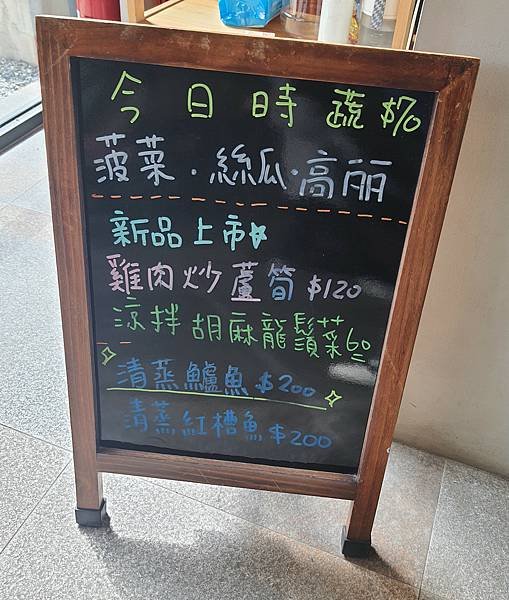 今日時蔬 $70
菠菜.絲瓜.高丽
新品上市
雞肉炒蘆筍 $120
涼拌胡麻龍鬚菜60
清蒸鱸魚 $200
清蒸紅槽魚 $200